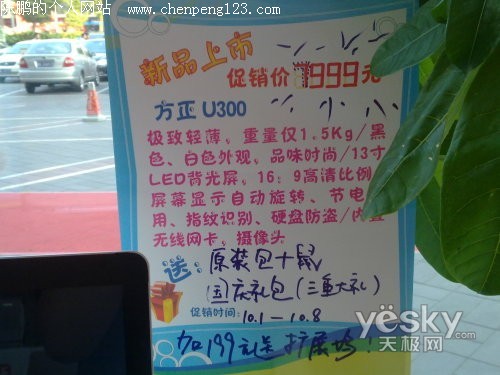 陈鹏的个人网站
www.chenpeng123.com
新品上市
促销价 1999元
方正 U300
极致轻薄，重量仅1.5Kg/黑
色、白色外观，品味时尚/13寸
LED背光屏，16：9高清比例
屏幕显示自动旋转、节电
用、指纹识别、硬盘防盗/内置
无线网卡，摄像头
送：原装包+鼠
国庆礼包（三重大礼）
促销时间：10.1—10.8
加199元送扩展坞！
yesky
天极网